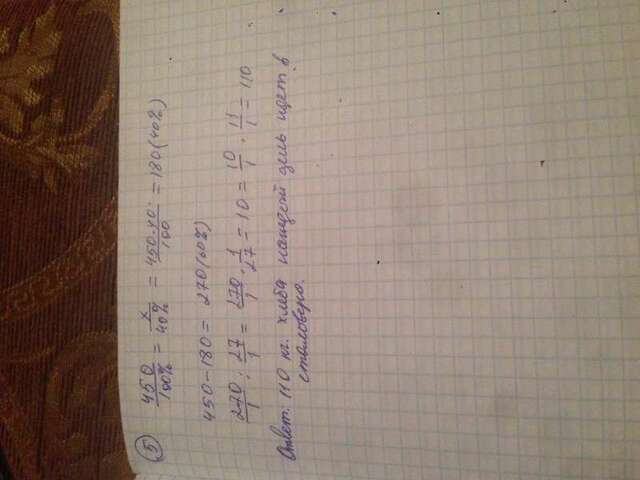 5 450/100% = x/40% = 450·40/100 = 180(40%)
450-180 = 270(60%)
270/1 : 27/1 = 270/1 · 1/27 = 10 = 10/1 · 11/1 = 110
Ответ: 110 кг. хлеба каждый день идет в
столовую.